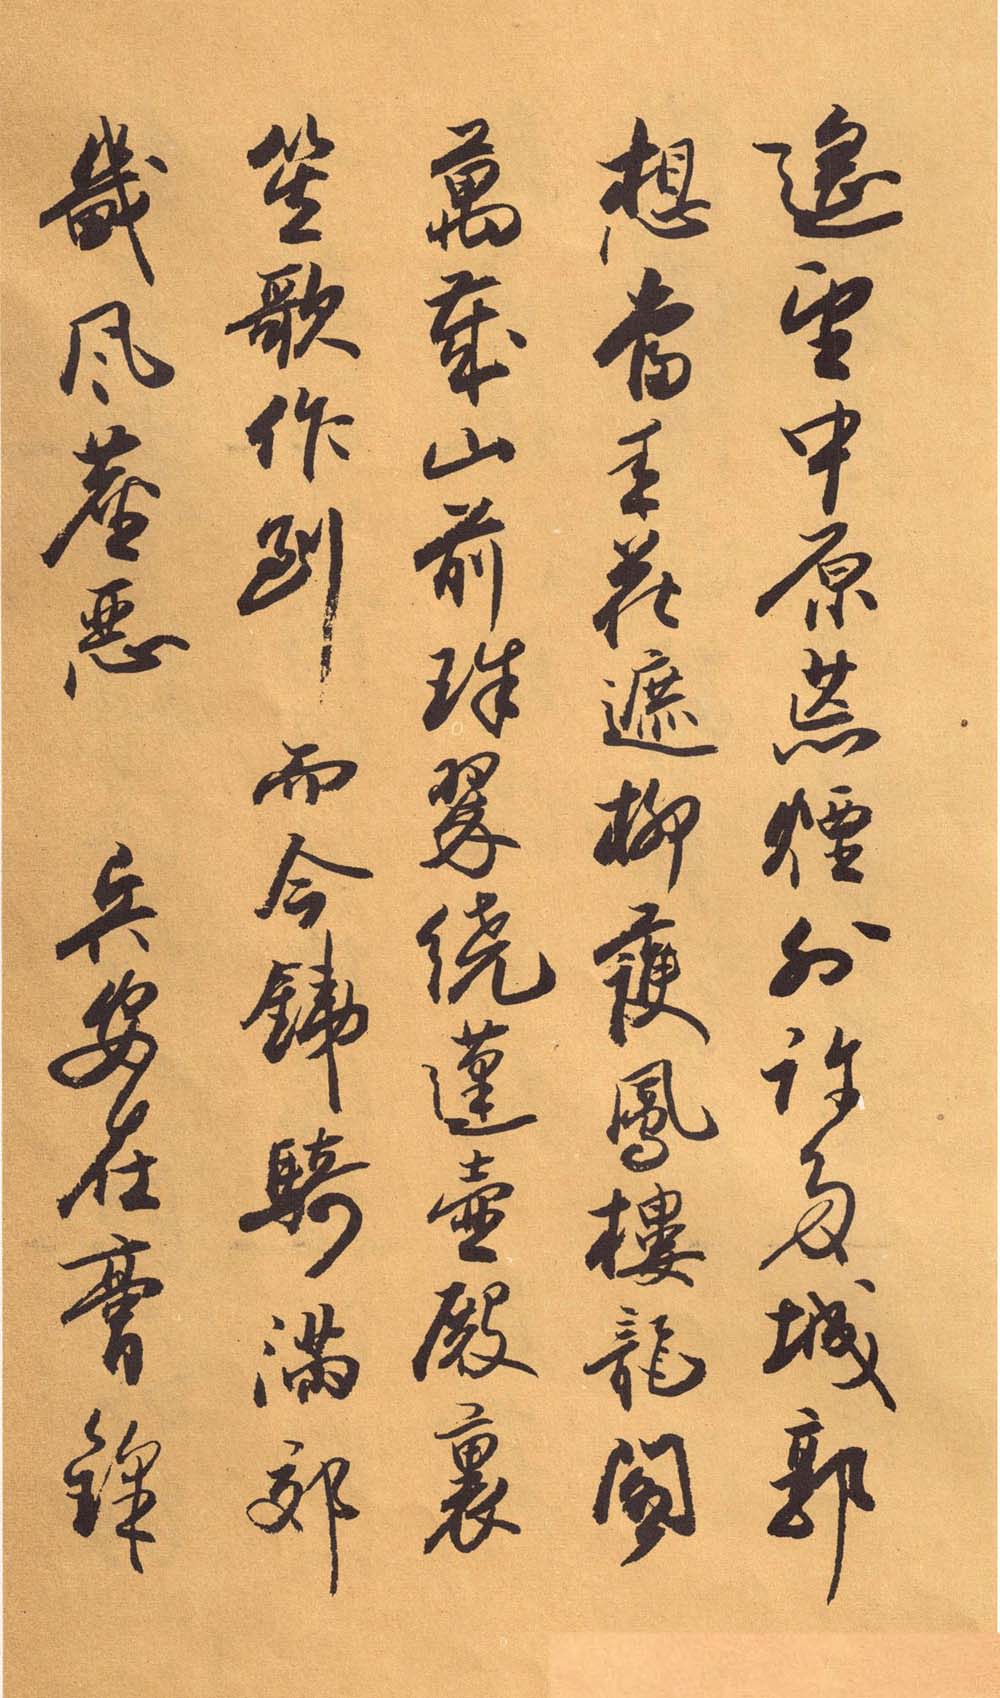 遥望中原荒煙外許多城郭
想當年花遮柳護鳳樓龍閣
萬歲山前珠翠繞蓬壺殿裏
笙歌作到 而今鐵騎滿郊
畿風塵惡 兵安在膏鋒